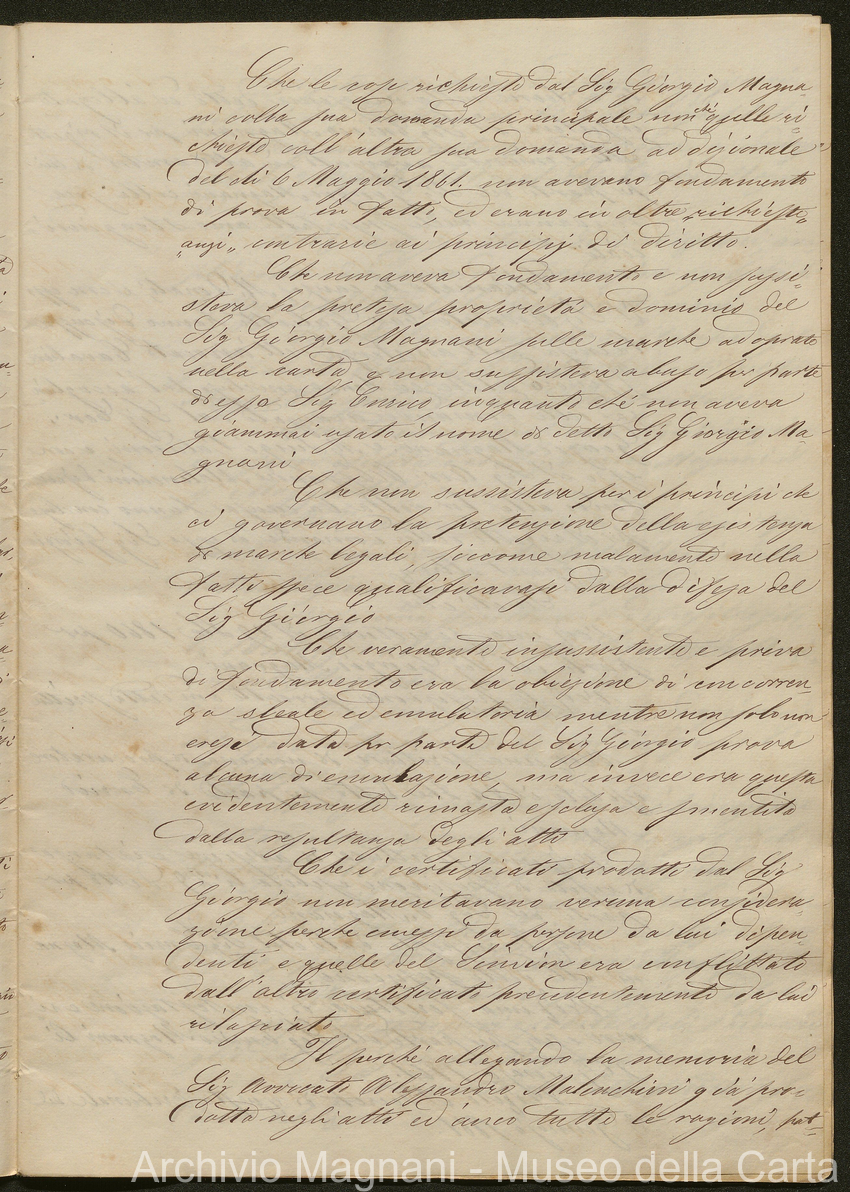 Che le cose richieste dal Sig Giorgio Magna-
ni colla sua domanda principale non che quelle ri=
chieste coll'altra sua domanda addizionale
del dì 6 Maggio 1861. non avevano fondamento
di prova in fatto, ed erano in oltre „richieste„
„anzi„ contrarie ai principj di diritto.
Che non aveva fondamento e non sussi=
steva la pretesa proprietà e dominio del
Sig Giorgio Magnani sulle marche adoprate
nella carta e non sussisteva abuso per parte
di esso Sig Enrico, inquanto ché non aveva
giammai usato il nome di detto Sig Giorgio Ma-
gnani
Che non sussisteva per i principi che
ci governano la pretenzione della esistenza
di marche legali, siccome malamente nella
fatti specie qualificavasi dalla difesa del
Sig Giorgio
Che veramente insussistente e priva
di fondamento era la obiezione di concorren-
za sleale ed emulatoria mentre non solo non
erasi data per parte del Sig Giorgio prova
alcuna di emulazione, ma invece era questa
evidentemente rimasta esclusa e smentita
dalla resultanza degli atti
Che i certificati prodotti dal Sig
Giorgio non meritavano veruna considera-
zione perche emessi da persone da lui dipen-
denti e quelle del era conflittato
dall'altro certificato precedentemente da lui
rilasciato
Il perché allegando la memoria del
Sig Avvocato Alessandro Malenchini già pro-
dotta negli atti ed anco tutte le ragioni, fat-
Archivio Magnani - Museo della Carta